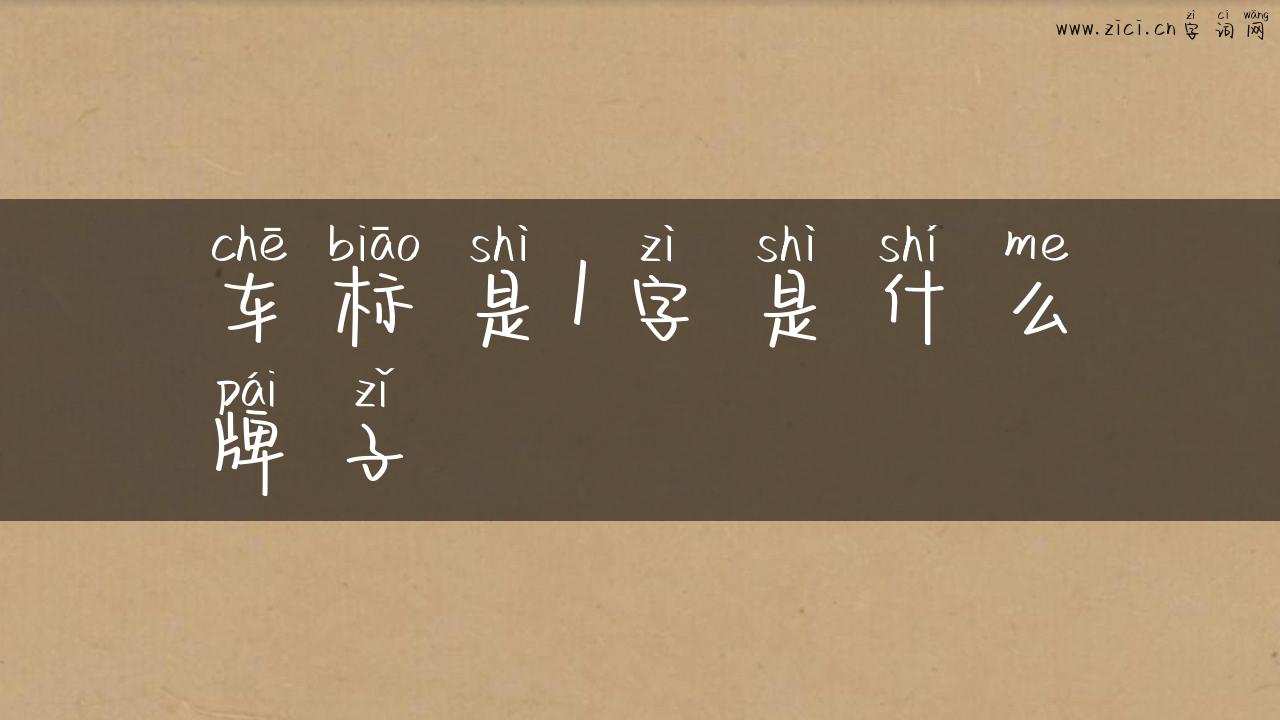 zì cí wǎng
www.zici.cn 字词网
chē biāo shì zì shì shí me
车标是1字是什么
pái zǐ
牌子